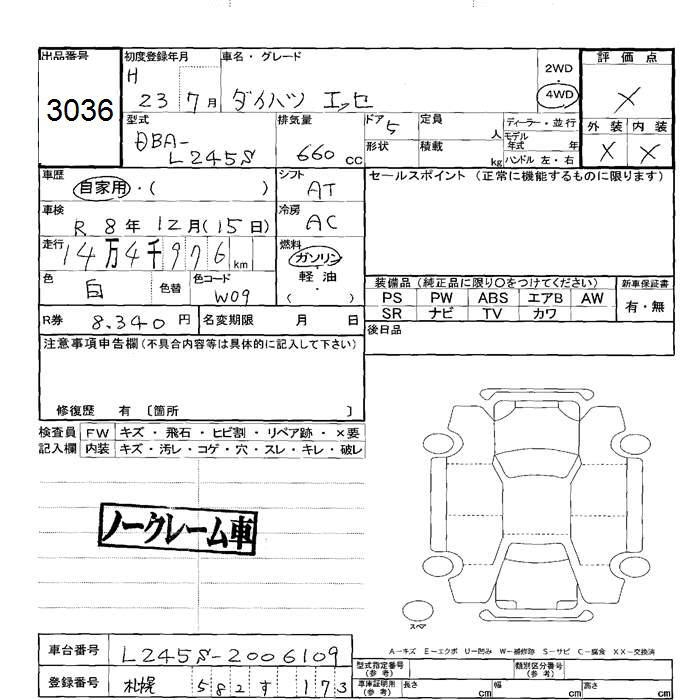 出品番号
3036
初度登録年月
H 23 7月
車名・グレード
ダイハツ エッセ
2WD
4WD
評価点
×
外装 内装
× ×
型式
DBA-
L245S
排気量
660 cc
ドア 5
形状
定員 人
積載 kg
ディーラー・並行
モデル
年式 年
ハンドル 左・右
車歴
自家用・( )
シフト
AT
セールスポイント (正常に機能するものに限ります)
車検
R 8年 12月(15日)
冷房
AC
走行
14万4千976km
燃料
ガソリン
軽油
( )
色
白
色替
色コード
W09
装備品 (純正品に限り○をつけてください)
新車保証書
PS PW ABS エアB AW
有・無
SR ナビ TV カワ
R券 8,340 円
名変期限 月 日
後日品
注意事項申告欄(不具合内容等は具体的に記入して下さい)
修復歴 有 〔箇所 〕
検査員 FW キズ・飛石・ヒビ割・リペア跡・×要
記入欄 内装 キズ・汚レ・コゲ・穴・スレ・キレ・破レ
ノークレーム車
スペア
A-キズ E-エクボ U-凹み W-補修跡 S-サビ C-腐食 XX-交換済
車台番号 L245S-2006109
型式指定番号
(参考)
類別区分番号
(参考)
登録番号 札幌 582 す 173
車庫証明用
(参考)
長さ cm 幅 cm 高さ cm